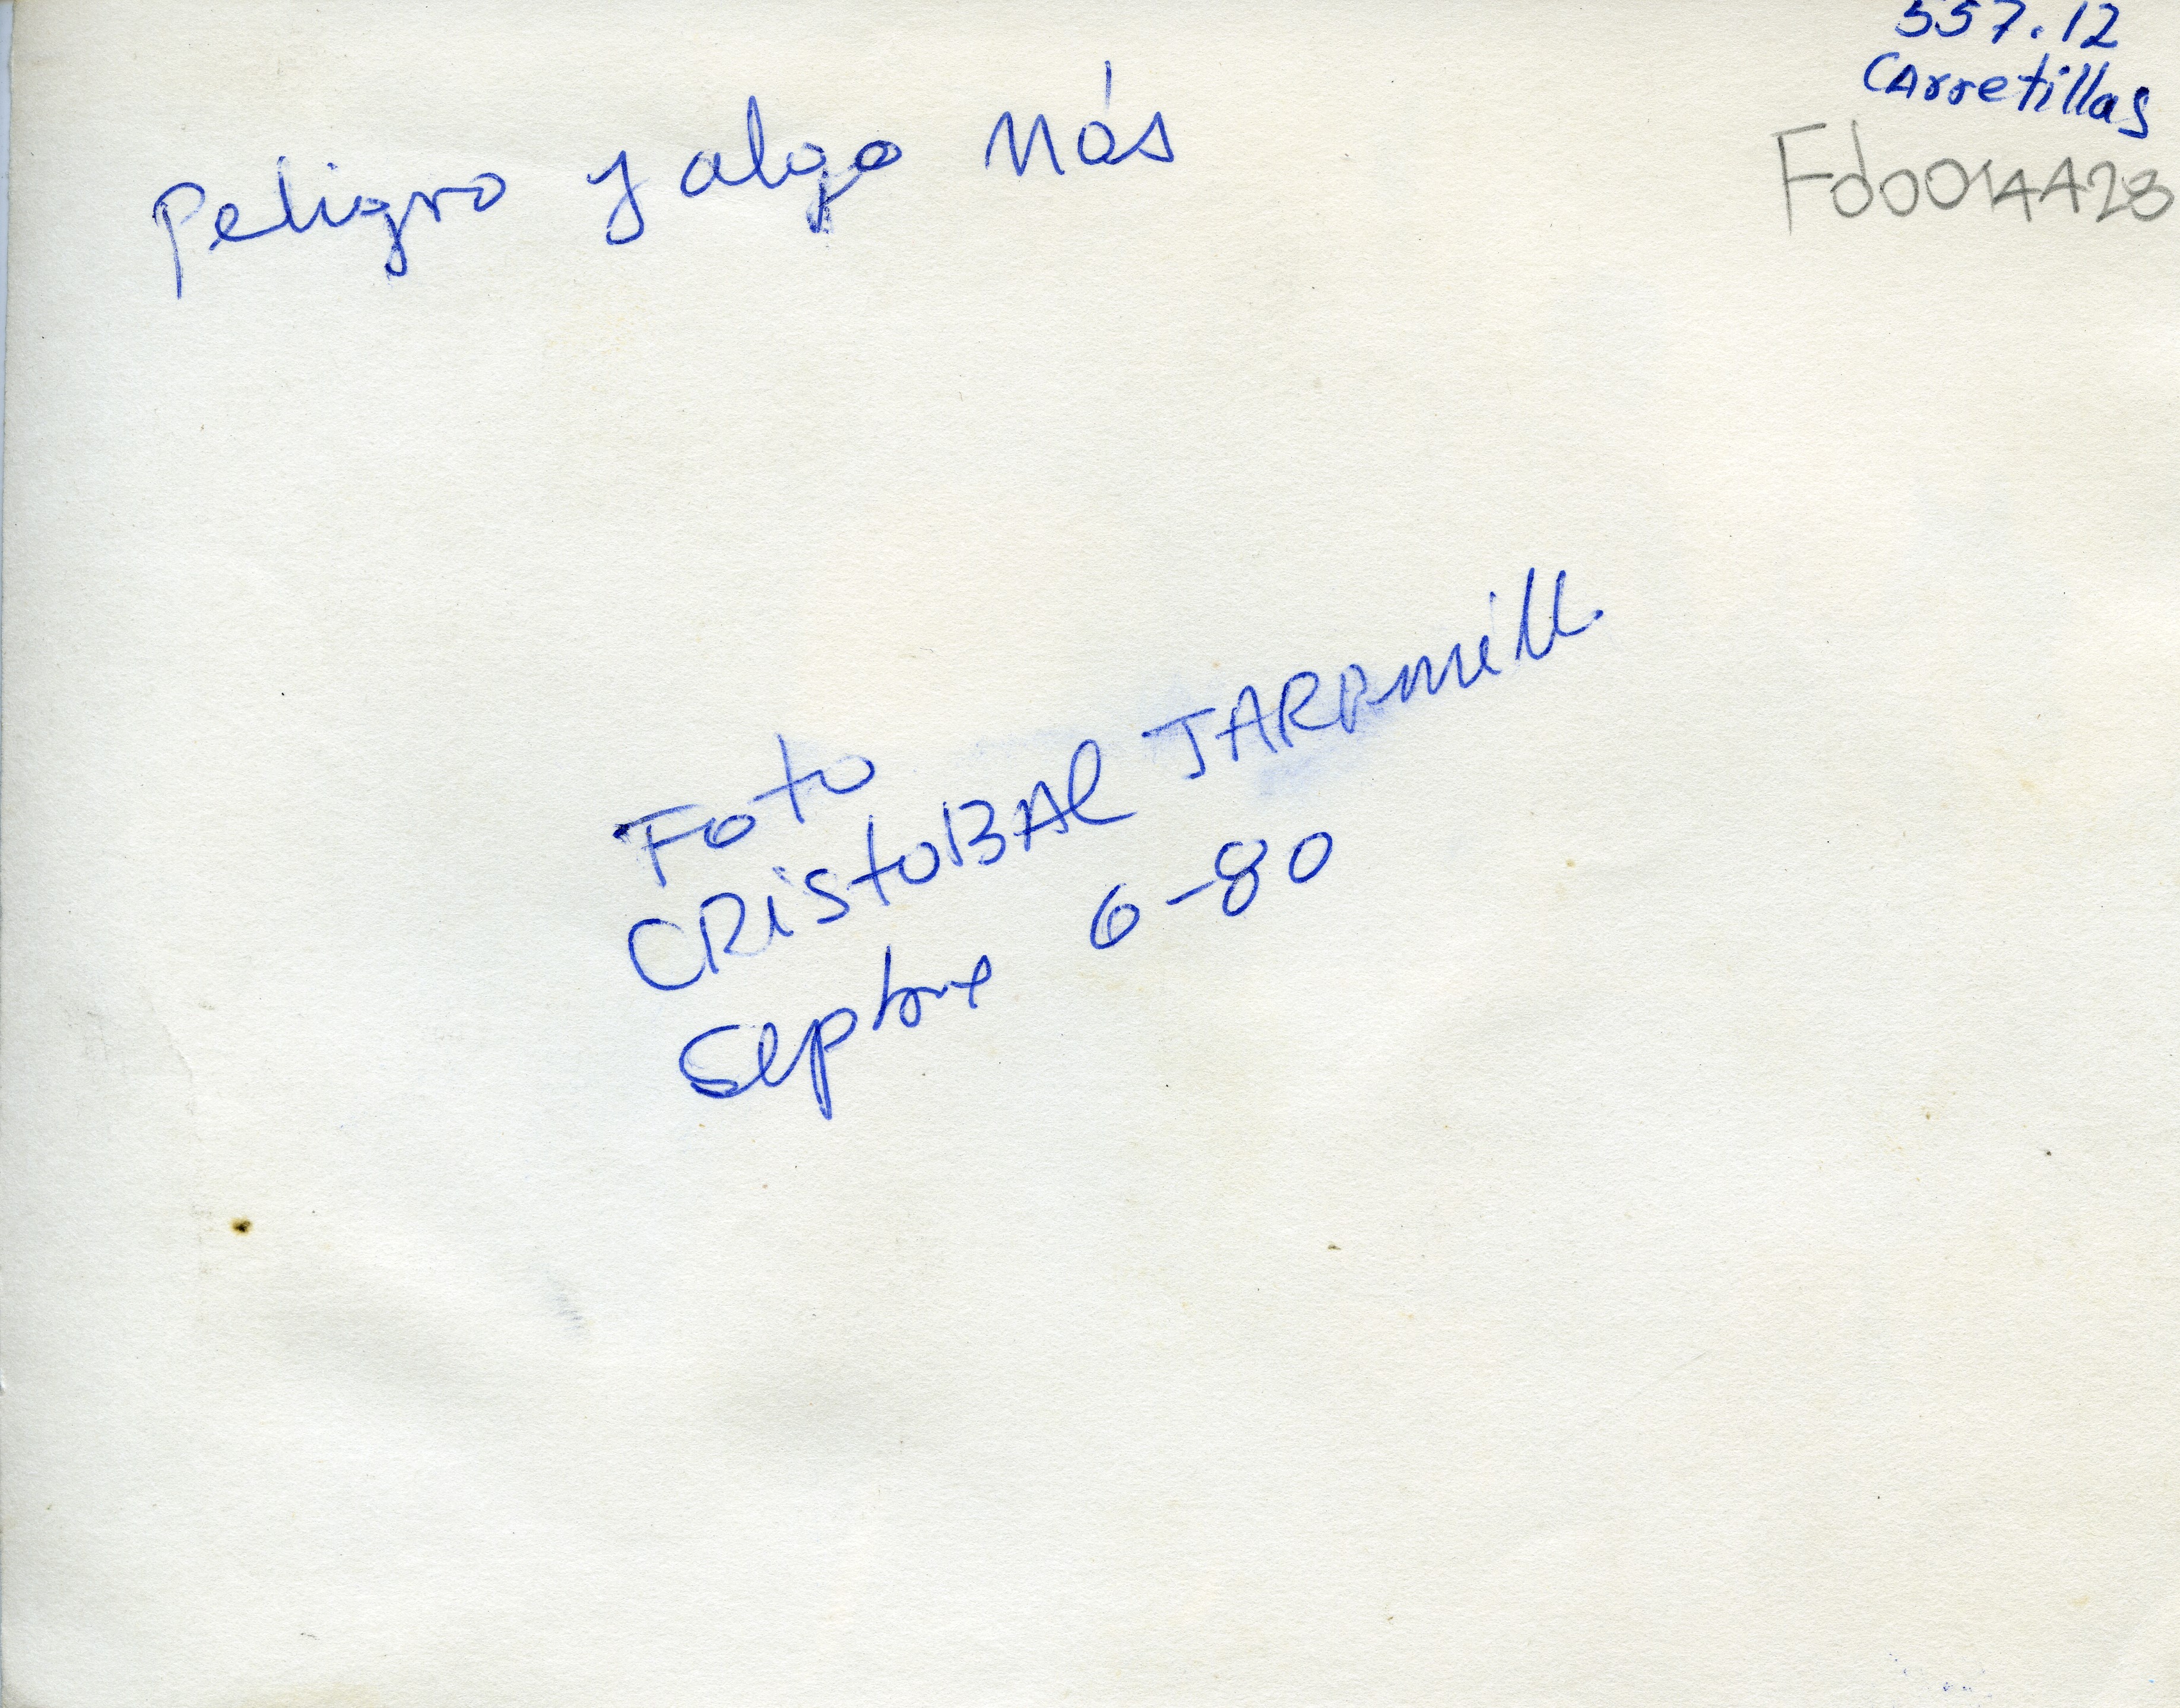 557.12
CArretillas
Fdo014A28
Peligro y algo más
Foto
CRistoBAl JARAmill.
Sepbre 6-80